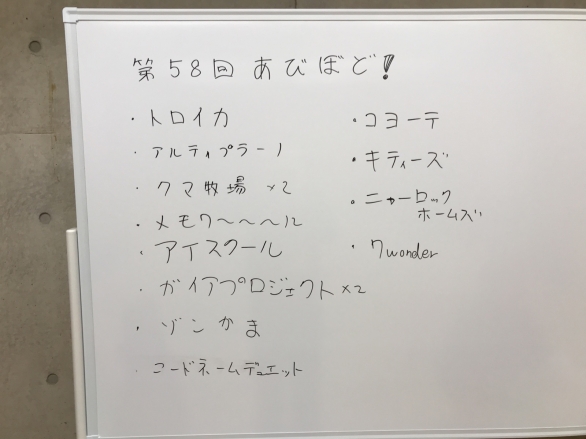 第58回 あびぼど!
・トロイカ
・アルティプラーノ
・クマ牧場 ×2
・メモワ〜〜〜ル
・アイスクール
・ガイアプロジェクト×2
・ゾンかま
・コードネームデュエット
・コヨーテ
・キティーズ
・ニャーロック
ホームズ
・7wonder